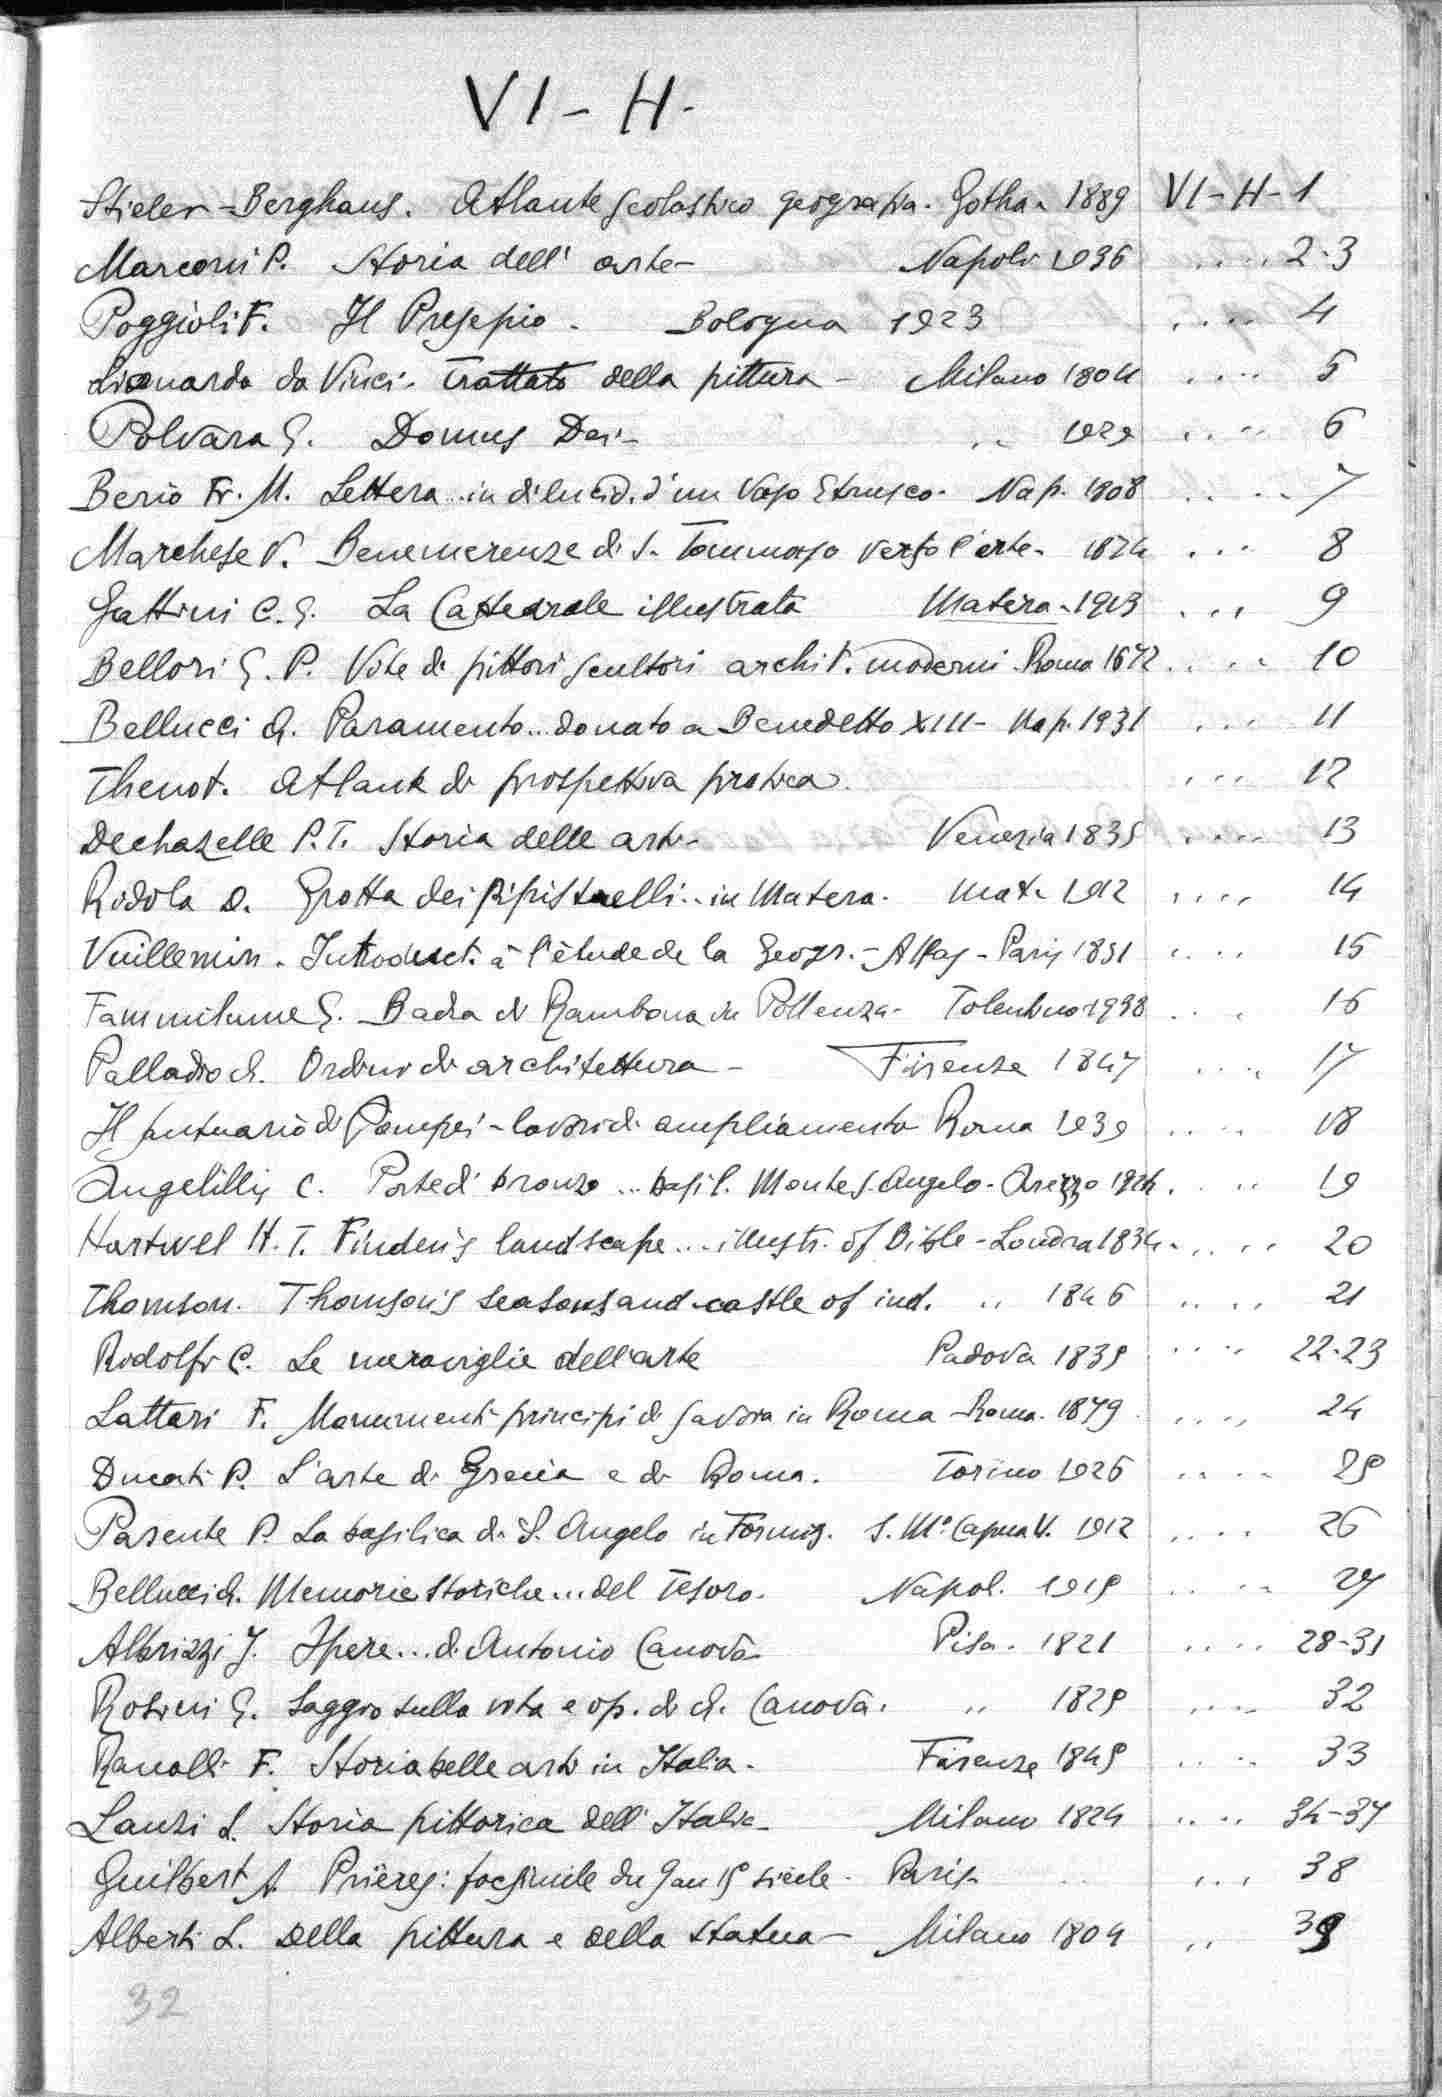 VI - H -
Stieler - Berghaus. Atlante scolastico geografia. Gotha. 1889 VI - H - 1
Marconi P. Storia dell' arte - Napoli 1936 .... 2-3
Poggioli F. Il Presepio. Bologna 1923 .... 4
Lionardo da Vinci. Trattato della pittura - Milano 1804 .... 5
Polvara G. Domus Dei - " 1929 .... 6
Berio Fr. M. Lettera .. in dilucid. d'un Vaso Etrusco. Nap. 1808 .... 7
Marchese V. Benemerenze di S. Tommaso verso l'arte. 1874 ... 8
Gattini C. G. La Cattedrale illustrata Matera - 1913 ... 9
Bellori G. P. Vite di pittori scultori archit. moderni. Roma 1672 .... 10
Bellucci A. Paramento .. donato a Benedetto XIII - Nap. 1931 .... 11
Thenot. Atlante di prospettiva pratica. .... 12
Dechazelle P. T. Storia delle arti - Venezia 1835 .... 13
Ridola D. Grotta dei pipistrelli .. in Matera. Mat. 1912 .... 14
Vuillemin. Introduct. à l'étude de la Geogr. - Atlas - Paris 1851 .... 15
Fammilume G. Badia di Rambona in Pollenza - Tolentino 1938 .... 16
Palladio A. Ordini di architettura - Firenze 1847 .... 17
Il santuario di Pompei - lavori di ampliamento Roma 1939 .... 18
Angelillis C. Porte di bronzo ... basil. Monte S. Angelo - Arezzo 1924 .... 19
Hartwel H. T. Finden's landscape ... illustr. of Bible - Londra 1834 .... 20
Thomson. Thomson's seasons and castle of ind. " 1846 .... 21
Ridolfi C. Le meraviglie dell'arte Padova 1835 .... 22-23
Lattari F. Monumenti principi di Savoia in Roma - Roma. 1879 .... 24
Ducati P. L'arte di Grecia e di Roma. Torino 1926 .... 25
Parente P. La basilica di S. Angelo in Formis. S. Mª Capua V. 1912 .... 26
Bellucci A. Memorie storiche ... del Tesoro. Napol. 1915 .... 27
Albrizzi I. Opere ... di Antonio Canova Pisa. 1821 .... 28-31
Rosini G. Saggio sulla vita e op. di A. Canova. " 1825 .... 32
Ranalli F. Storia belle arti in Italia. Firenze 1845 .... 33
Lanzi L. Storia pittorica dell' Italia - Milano 1824 .... 34-37
Guilbert A. Prières: facsimile du 9 au 15 siècle. Paris .... 38
Alberti L. Della pittura e della statua - Milano 1804 " 39
32